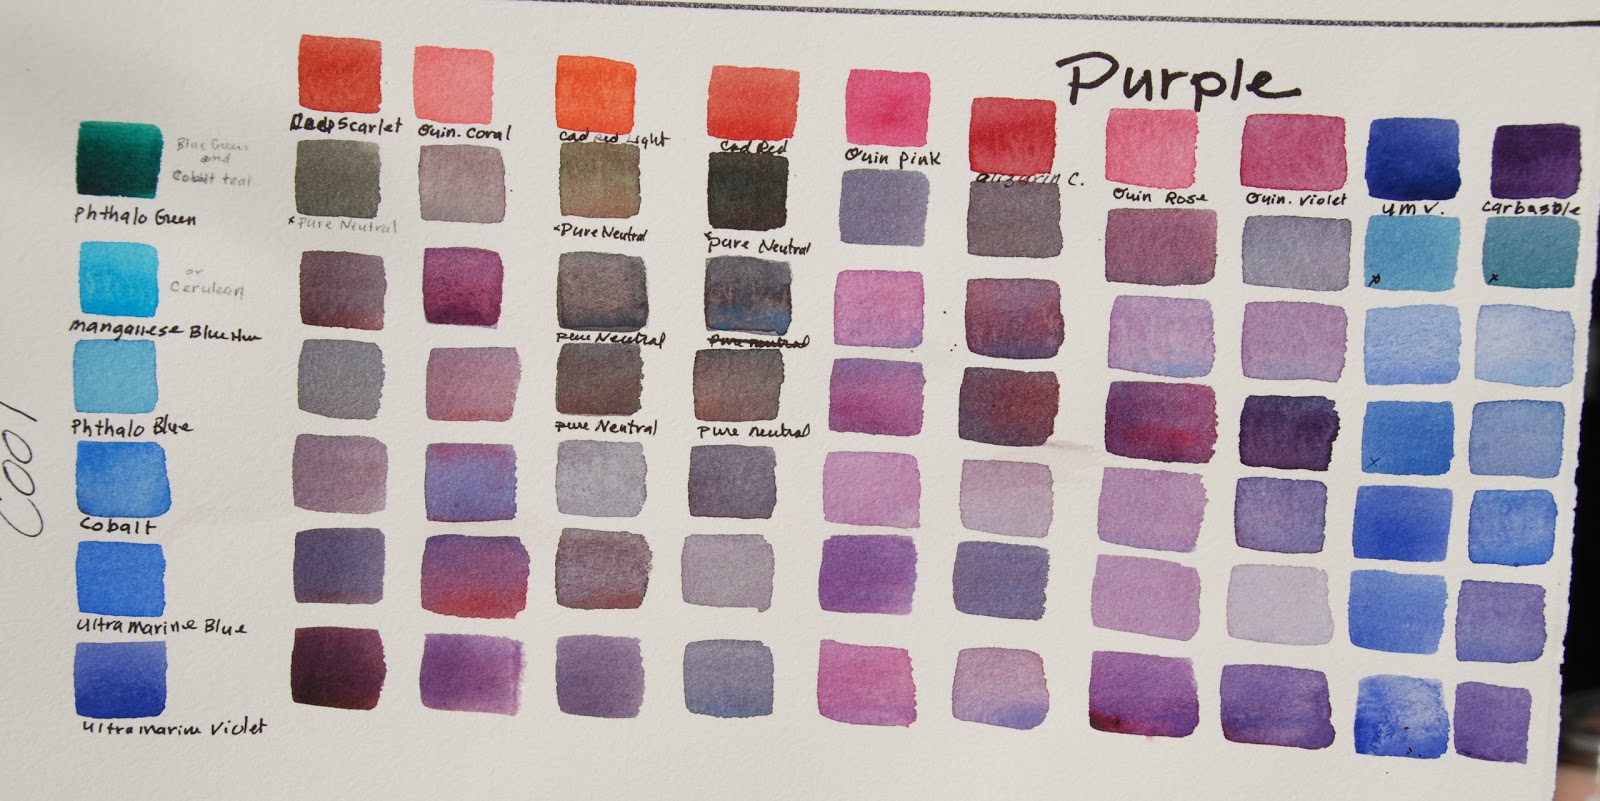 Purple
Scarlet
Quin. Coral
Cad Red Light
Cad Red
Quin pink
alizarin C.
Quin Rose
Quin. Violet
UM V.
Carbazole
Blue Green
and
Cobalt teal
Phthalo Green
x Pure Neutral
x Pure Neutral
x Pure Neutral
or
Cerulean
Manganese Blue Hue
pure Neutral
pure neutral
Phthalo Blue
pure Neutral
pure neutral
Cobalt
Ultramarine Blue
Ultramarine Violet
Cool